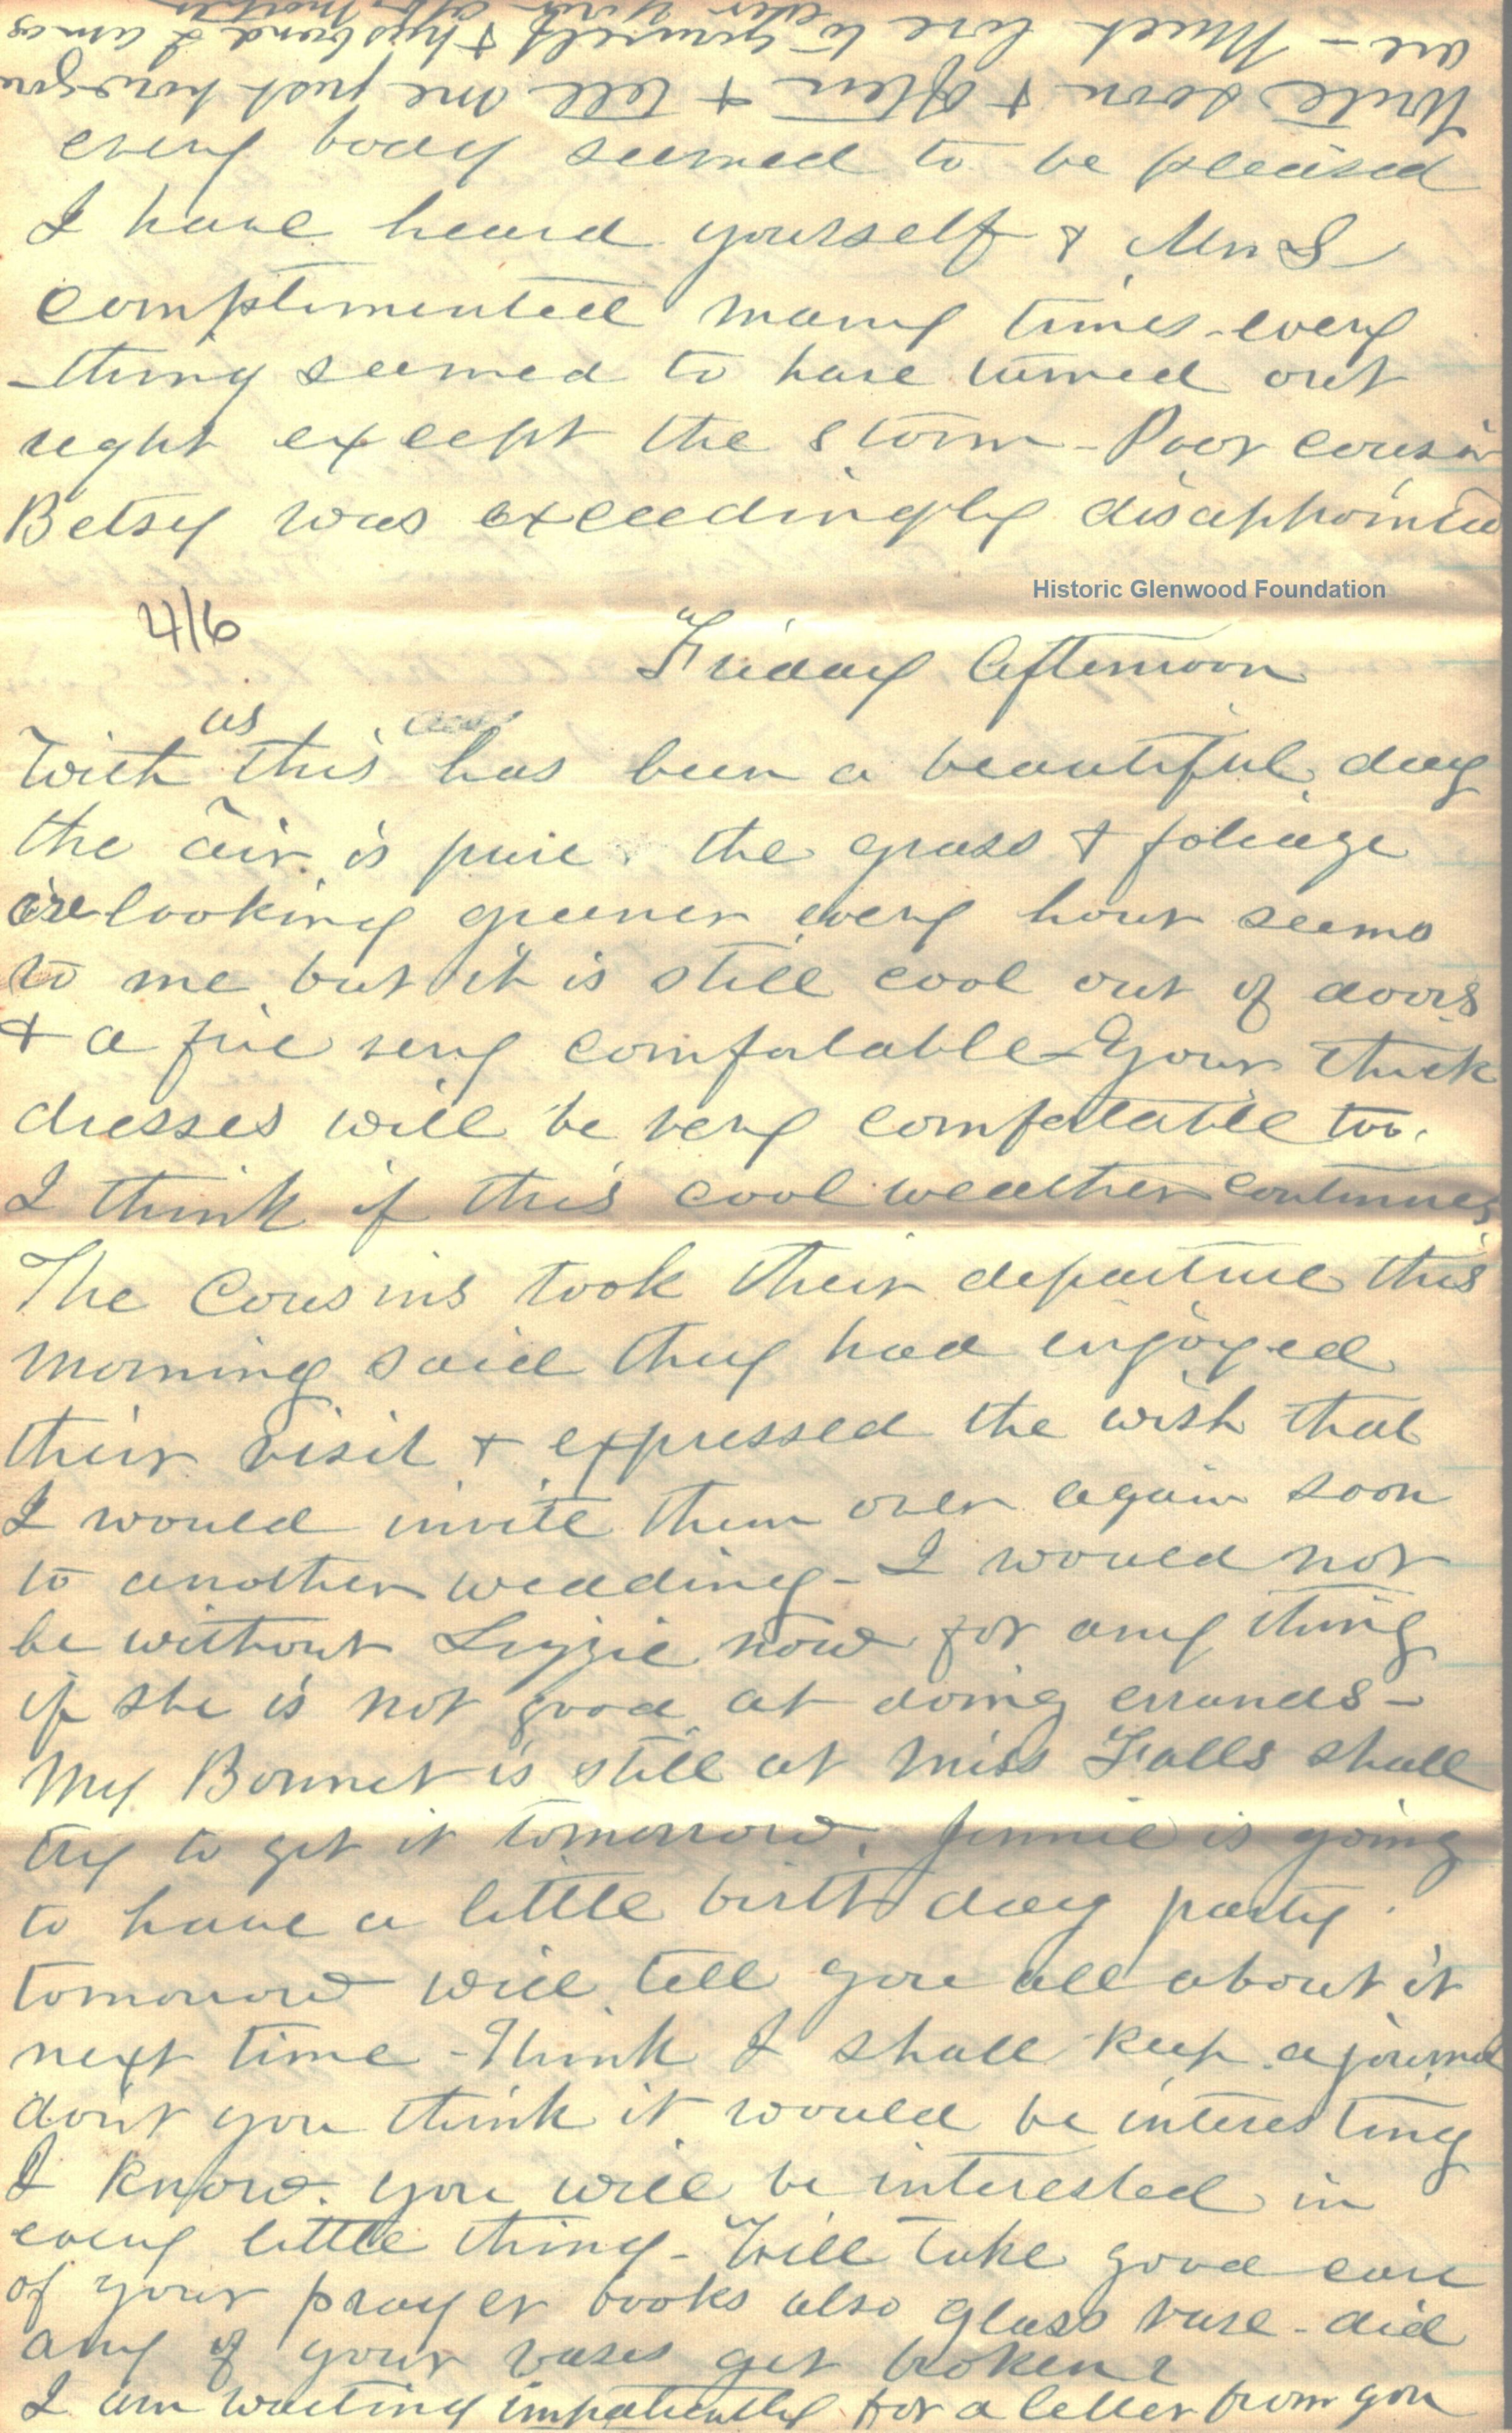 every body seemed to be pleased
I have heard yourself & Mr S
complimented many times - every
-thing seemed to have turned out
right except the storm - Poor cousin
Betsy was exceedingly disappointed
Historic Glenwood Foundation
4/6
Friday Afternoon
us
With this has been a beautiful day
the air is pure. the grass & foliage
are looking greener every hour seems
to me but it is still cool out of doors
& a fire very comfortable - Your thick
dresses will be very comfortable too.
I think if this cool weather continues
The Cousins took their departure this
morning said they had enjoyed
their visit & expressed the wish that
I would invite them over again soon
to another wedding - I would not
be without Lizzie now for any thing
if she is not good at doing errands -
My Bonnet is still at Miss Falls shall
try to get it tomorrow. Jennie is going
to have a little birth day party
tomorrow will tell you all about it
next time - Think I shall keep a journal
don't you think it would be interesting
I know you will be interested in
every little thing - Will take good care
of your prayer books also glass vase - did
any of your vases get broken?
I am waiting impatiently for a letter from you
Write soon & often & tell me just how you
are - Much love to yourself & husband